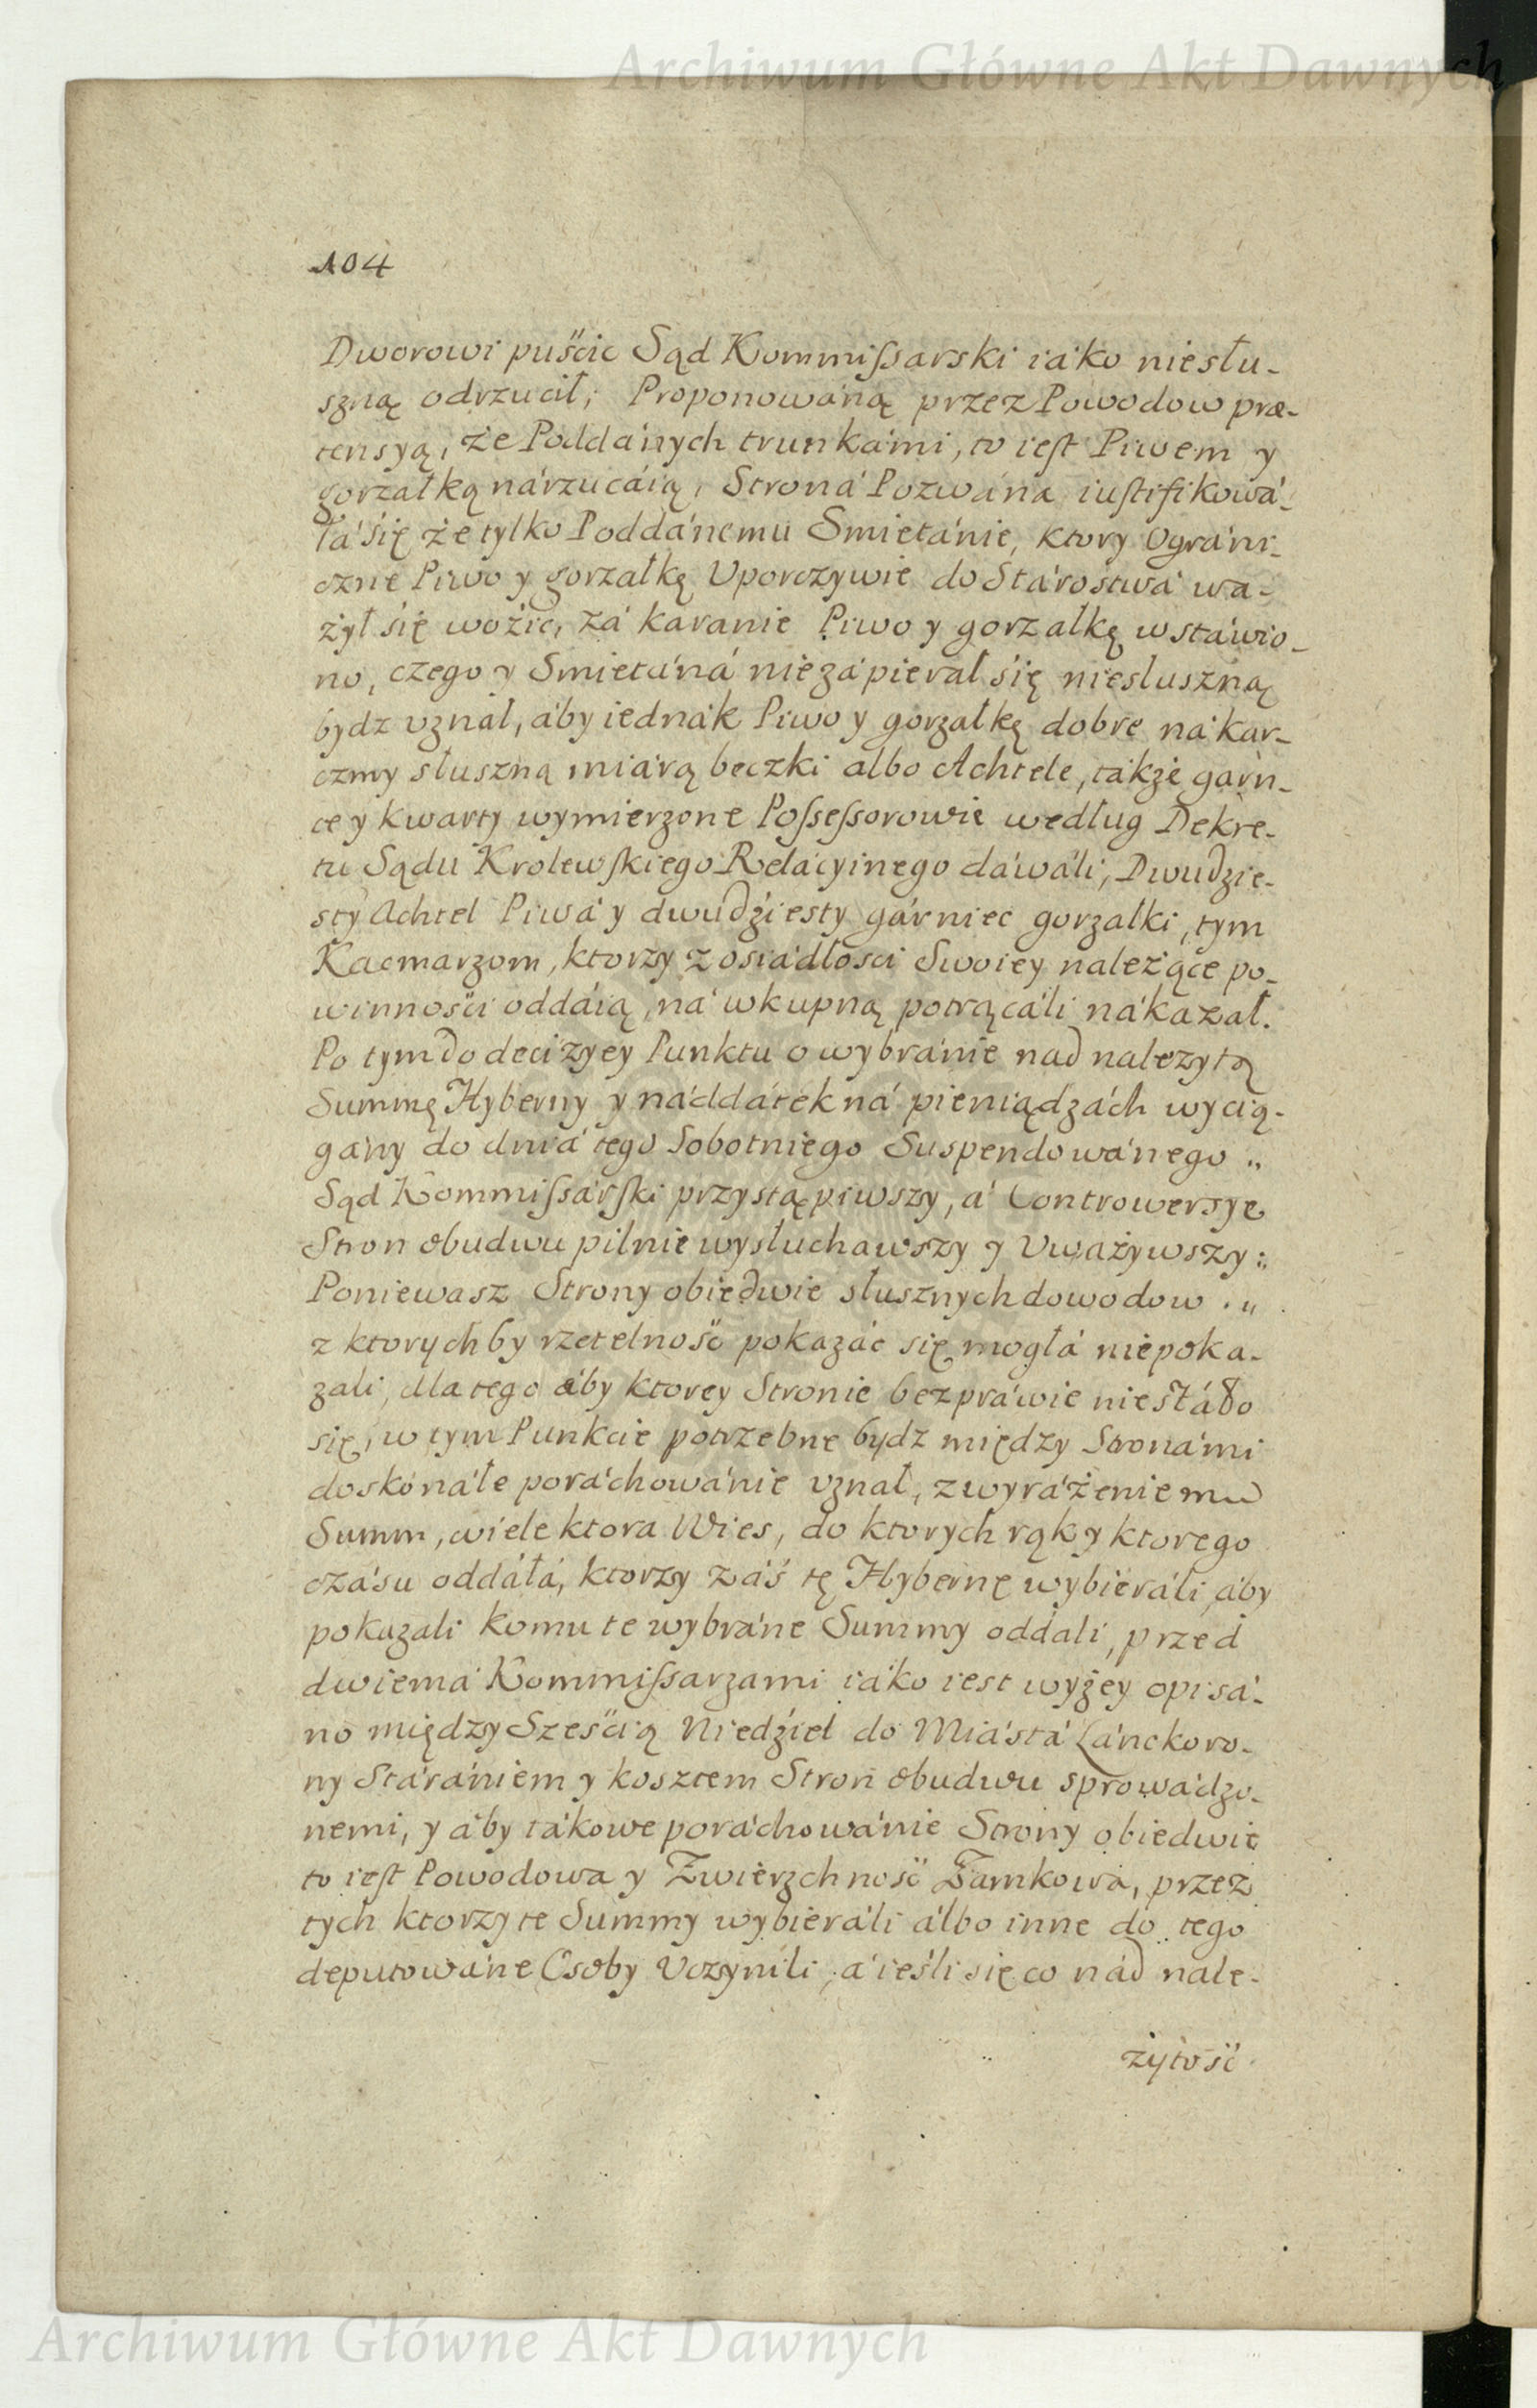 Archiwum Główne Akt Dawnych
104
Dworowi puścic Sąd Kommissarski iáko niesłu-
szną odrzucił; Proponowáną przez Powodow præ-
tensyą, że Poddánych trunkámi, to iest Piwem y
gorzałką nárzucáią, Stroná Pozwána iustifikowá-
łá się że tylko Poddánemu Smietánie, ktory Ográni-
czne Piwo y gorzałkę Uporczywie do Stárostwá wa-
żył się woźić, zá karanie Piwo y gorzałkę wstáwio-
no, czego y Smietáná nie zápierał się niesłuszną
bydz uznał, áby iednák Piwo y gorzałkę dobre ná kar-
czmy słuszną miárą beczki albo Achtele, tákże gárn-
ce y kwarty wymierzone Possessorowie według Dekre-
tu Sądu Krolewskiego Relácyinego dáwáli, Dwudzie-
sty Achtel Piwá y dwudźiesty gárniec gorzałki, tym
Kacmarzom, ktorzy z osiádłosci Swoiey należące po-
winności oddáią, ná wkupną potrącáli nákazał.
Po tym do decizyey Punktu o wybránie nad nalezytą
Summę Hyberny y náddátek ná pieniądzách wycią-
gány do dniá tego Sobotniego Suspendowánego „
Sąd Kommissárski przystąpiwszy, á Controwersye
Stron obudwu pilnie wysłuchawszy y Uważywszy „
Poniewasz Strony obiedwie słusznych dowodow . „
z ktorych by rzetelność pokazác się mogłá niepoka-
zali, dla tego áby ktorey Stronie bezpráwie niestáło
się, w tym Punkcie potrzebne bydz między Stronámi
doskonáłe poráchowánie uznał, z wyráżeniem
Summ, wiele ktora Wies, do ktorych rąk y ktorego
czásu oddáłá, ktorzy záś tę Hybernę wybieráli, áby
pokazali komu te wybráne Summy oddali, przed
dwiemá Kommissarzami iáko iest wyżey opisá-
no między Sześcią Niedźiel do Miástá Lánckoro-
ny Stárániem y kosztem Stron obudwu sprowádzo-
nemi, y áby tákowe poráchowánie Strony obiedwie
to iest Powodowa y Zwierzchność Zamkowa, przez
tych ktorzy te Summy wybieráli álbo inne do tego
deputowáne Osoby Uczynili, á ieśli się co nád nale-
żytość
Archiwum Główne Akt Dawnych